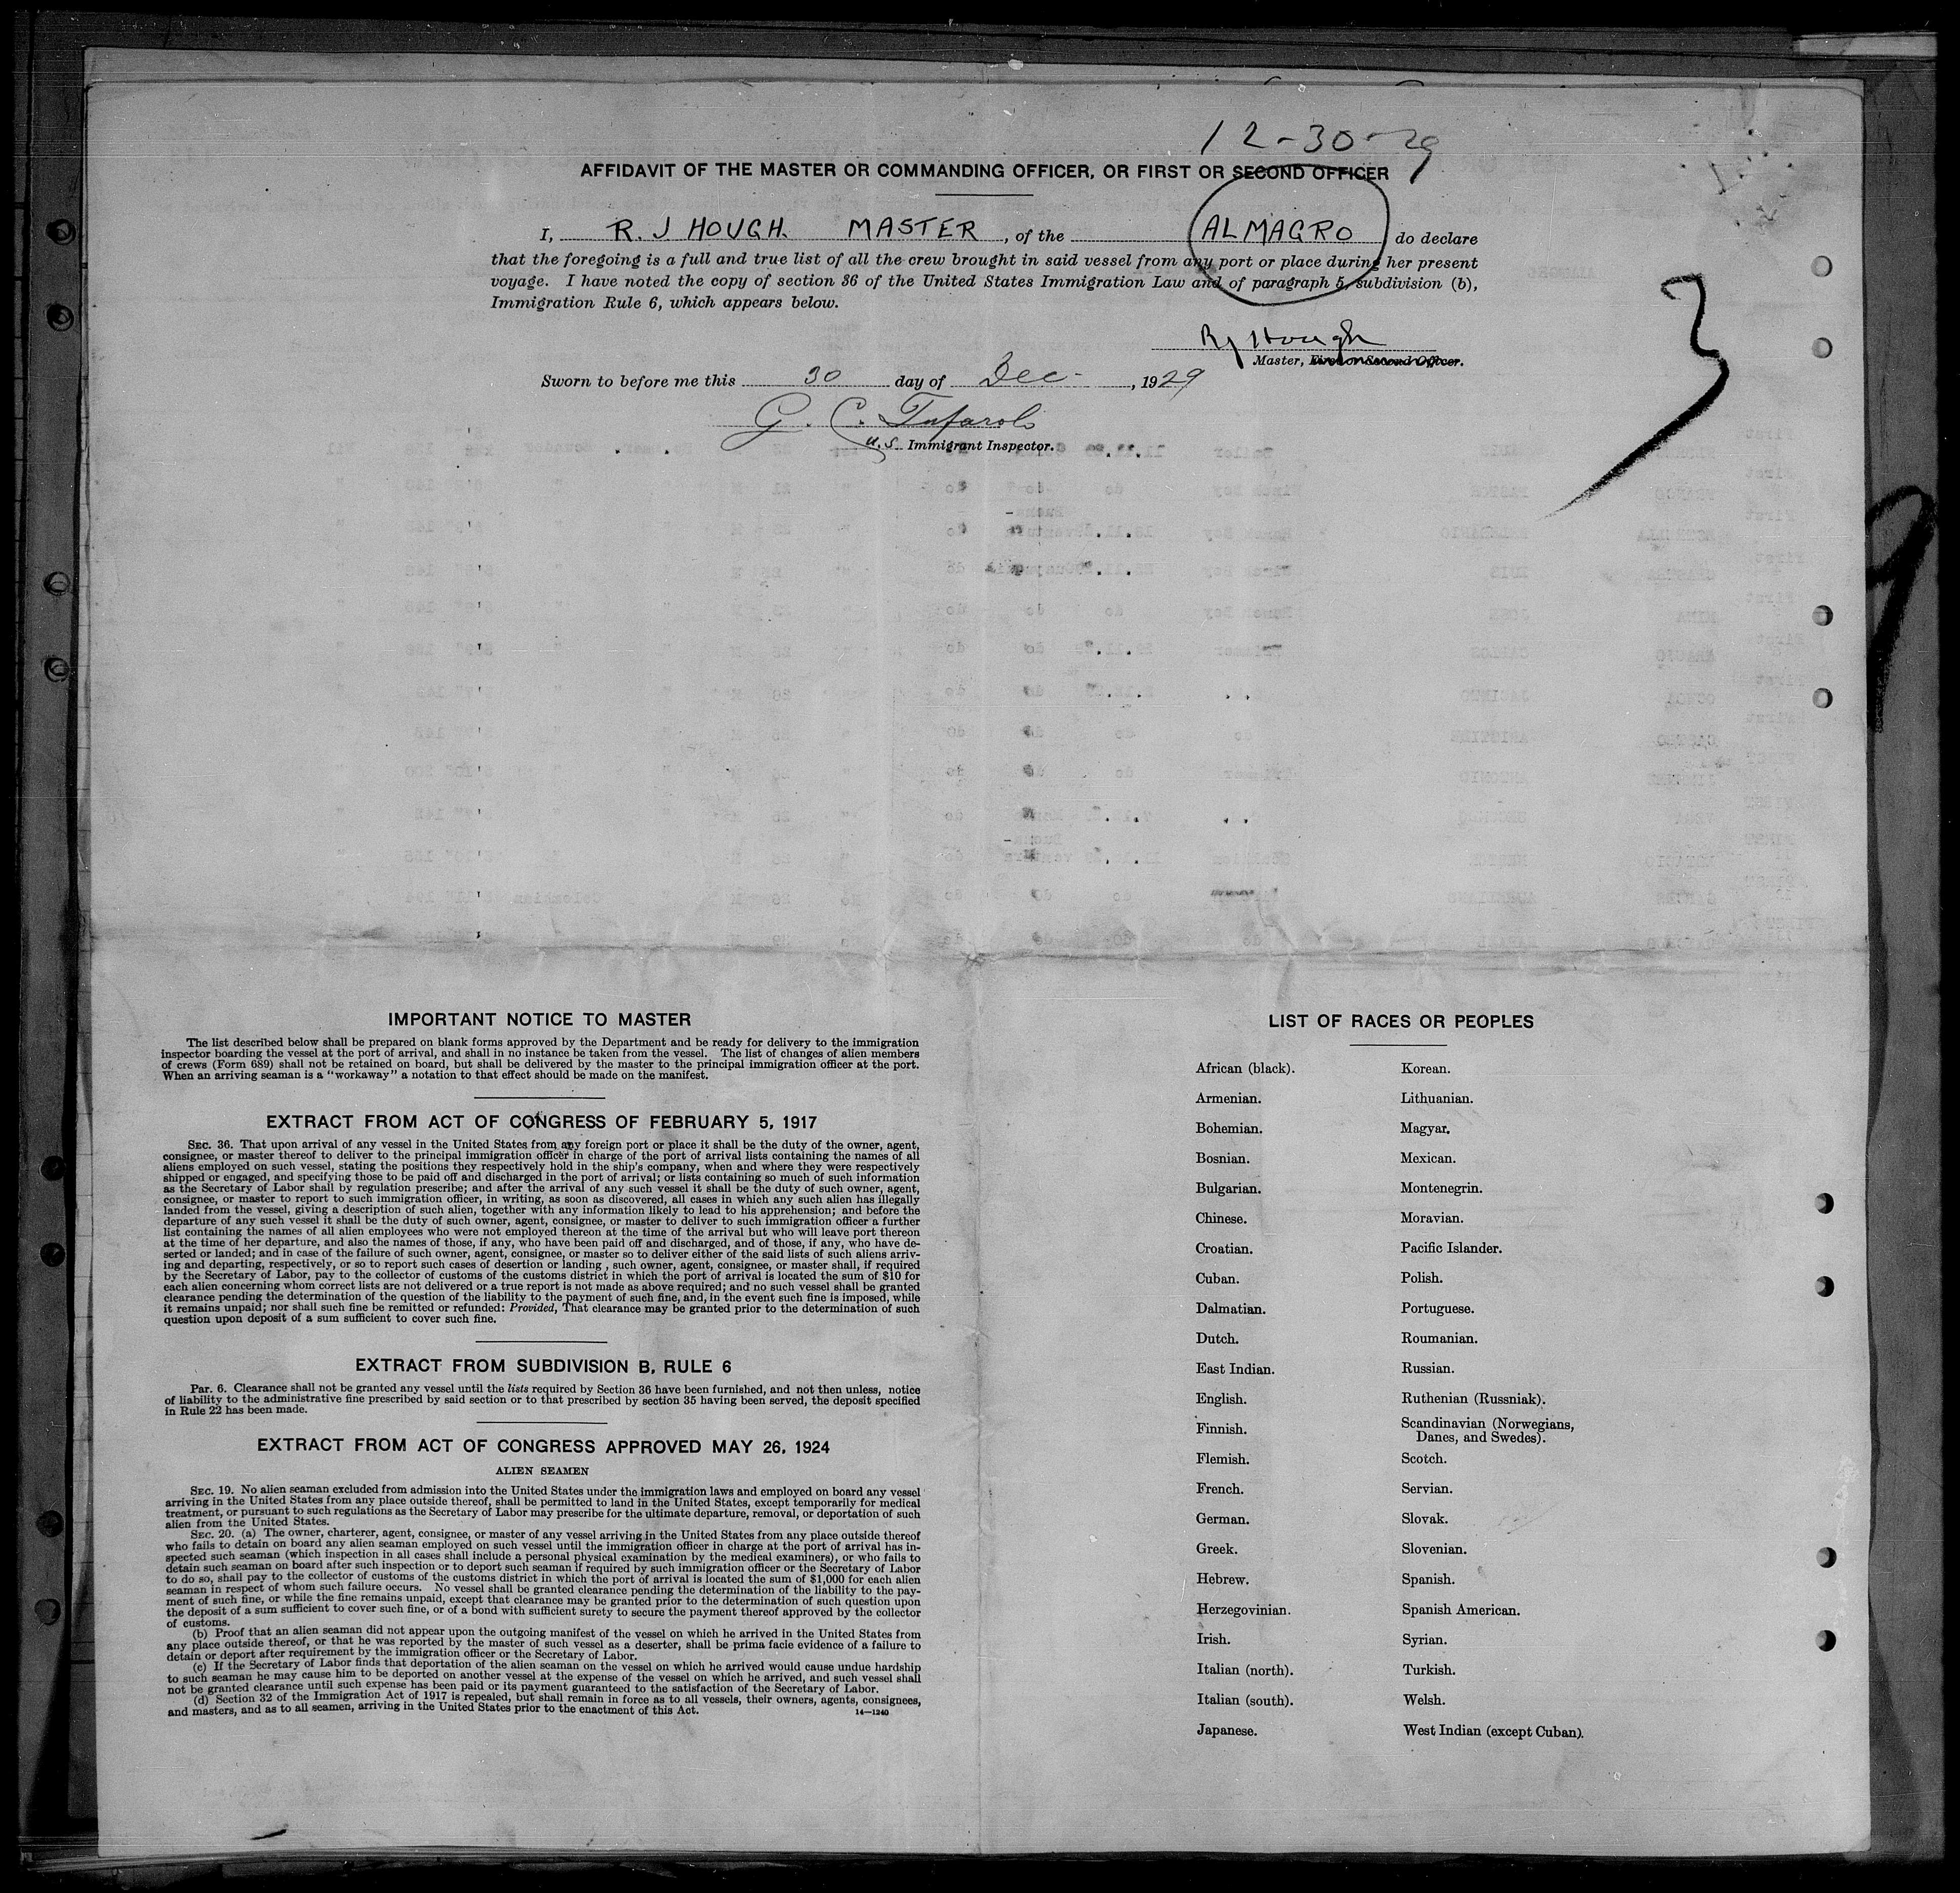 12-30-29
AFFIDAVIT OF THE MASTER OR COMMANDING OFFICER, OR FIRST OR SECOND OFFICER
I, R. J HOUGH. MASTER, of the ALMAGRO do declare
that the foregoing is a full and true list of all the crew brought in said vessel from any port or place during her present
voyage. I have noted the copy of section 36 of the United States Immigration Law and of paragraph 5, subdivision (b),
Immigration Rule 6, which appears below.
RJ Hough
Master, First or Second Officer.
Sworn to before me this 30 day of Dec-, 1929
G. C.
U.S. Immigrant Inspector.
3
IMPORTANT NOTICE TO MASTER
The list described below shall be prepared on blank forms approved by the Department and be ready for delivery to the immigration
inspector boarding the vessel at the port of arrival, and shall in no instance be taken from the vessel. The list of changes of alien members
of crews (Form 689) shall not be retained on board, but shall be delivered by the master to the principal immigration officer at the port.
When an arriving seaman is a "workaway" a notation to that effect should be made on the manifest.
EXTRACT FROM ACT OF CONGRESS OF FEBRUARY 5, 1917
SEC. 36. That upon arrival of any vessel in the United States from any foreign port or place it shall be the duty of the owner, agent,
consignee, or master thereof to deliver to the principal immigration officer in charge of the port of arrival lists containing the names of all
aliens employed on such vessel, stating the positions they respectively hold in the ship's company, when and where they were respectively
shipped or engaged, and specifying those to be paid off and discharged in the port of arrival; or lists containing so much of such information
as the Secretary of Labor shall by regulation prescribe; and after the arrival of any such vessel it shall be the duty of such owner, agent,
consignee, or master to report to such immigration officer, in writing, as soon as discovered, all cases in which any such alien has illegally
landed from the vessel, giving a description of such alien, together with any information likely to lead to his apprehension; and before the
departure of any such vessel it shall be the duty of such owner, agent, consignee, or master to deliver to such immigration officer a further
list containing the names of all alien employees who were not employed thereon at the time of the arrival but who will leave port thereon
at the time of her departure, and also the names of those, if any, who have been paid off and discharged, and of those, if any, who have de-
serted or landed; and in case of the failure of such owner, agent, consignee, or master so to deliver either of the said lists of such aliens arriv-
ing and departing, respectively, or so to report such cases of desertion or landing , such owner, agent, consignee, or master shall, if required
by the Secretary of Labor, pay to the collector of customs of the customs district in which the port of arrival is located the sum of $10 for
each alien concerning whom correct lists are not delivered or a true report is not made as above required; and no such vessel shall be granted
clearance pending the determination of the question of the liability to the payment of such fine, and, in the event such fine is imposed, while
it remains unpaid; nor shall such fine be remitted or refunded: Provided, That clearance may be granted prior to the determination of such
question upon deposit of a sum sufficient to cover such fine.
EXTRACT FROM SUBDIVISION B, RULE 6
Par. 6. Clearance shall not be granted any vessel until the lists required by Section 36 have been furnished, and not then unless, notice
of liability to the administrative fine prescribed by said section or to that prescribed by section 35 having been served, the deposit specified
in Rule 22 has been made.
EXTRACT FROM ACT OF CONGRESS APPROVED MAY 26, 1924
ALIEN SEAMEN
SEC. 19. No alien seaman excluded from admission into the United States under the immigration laws and employed on board any vessel
arriving in the United States from any place outside thereof, shall be permitted to land in the United States, except temporarily for medical
treatment, or pursuant to such regulations as the Secretary of Labor may prescribe for the ultimate departure, removal, or deportation of such
alien from the United States.
SEC. 20. (a) The owner, charterer, agent, consignee, or master of any vessel arriving in the United States from any place outside thereof
who fails to detain on board any alien seaman employed on such vessel until the immigration officer in charge at the port of arrival has in-
spected such seaman (which inspection in all cases shall include a personal physical examination by the medical examiners), or who fails to
detain such seaman on board after such inspection or to deport such seaman if required by such immigration officer or the Secretary of Labor
to do so, shall pay to the collector of customs of the customs district in which the port of arrival is located the sum of $1,000 for each alien
seaman in respect of whom such failure occurs. No vessel shall be granted clearance pending the determination of the liability to the pay-
ment of such fine, or while the fine remains unpaid, except that clearance may be granted prior to the determination of such question upon
the deposit of a sum sufficient to cover such fine, or of a bond with sufficient surety to secure the payment thereof approved by the collector
of customs.
(b) Proof that an alien seaman did not appear upon the outgoing manifest of the vessel on which he arrived in the United States from
any place outside thereof, or that he was reported by the master of such vessel as a deserter, shall be prima facie evidence of a failure to
detain or deport after requirement by the immigration officer or the Secretary of Labor.
(c) If the Secretary of Labor finds that deportation of the alien seaman on the vessel on which he arrived would cause undue hardship
to such seaman he may cause him to be deported on another vessel at the expense of the vessel on which he arrived, and such vessel shall
not be granted clearance until such expense has been paid or its payment guaranteed to the satisfaction of the Secretary of Labor.
(d) Section 32 of the Immigration Act of 1917 is repealed, but shall remain in force as to all vessels, their owners, agents, consignees,
and masters, and as to all seamen, arriving in the United States prior to the enactment of this Act.
14—1240
LIST OF RACES OR PEOPLES
African (black). Korean.
Armenian. Lithuanian.
Bohemian. Magyar.
Bosnian. Mexican.
Bulgarian. Montenegrin.
Chinese. Moravian.
Croatian. Pacific Islander.
Cuban. Polish.
Dalmatian. Portuguese.
Dutch. Roumanian.
East Indian. Russian.
English. Ruthenian (Russniak).
Finnish. Scandinavian (Norwegians,
Danes, and Swedes).
Flemish. Scotch.
French. Servian.
German. Slovak.
Greek. Slovenian.
Hebrew. Spanish.
Herzegovinian. Spanish American.
Irish. Syrian.
Italian (north). Turkish.
Italian (south). Welsh.
Japanese. West Indian (except Cuban).